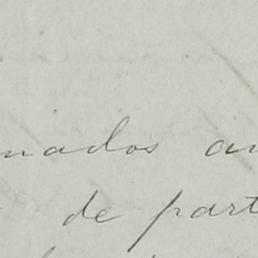 nados an
de part